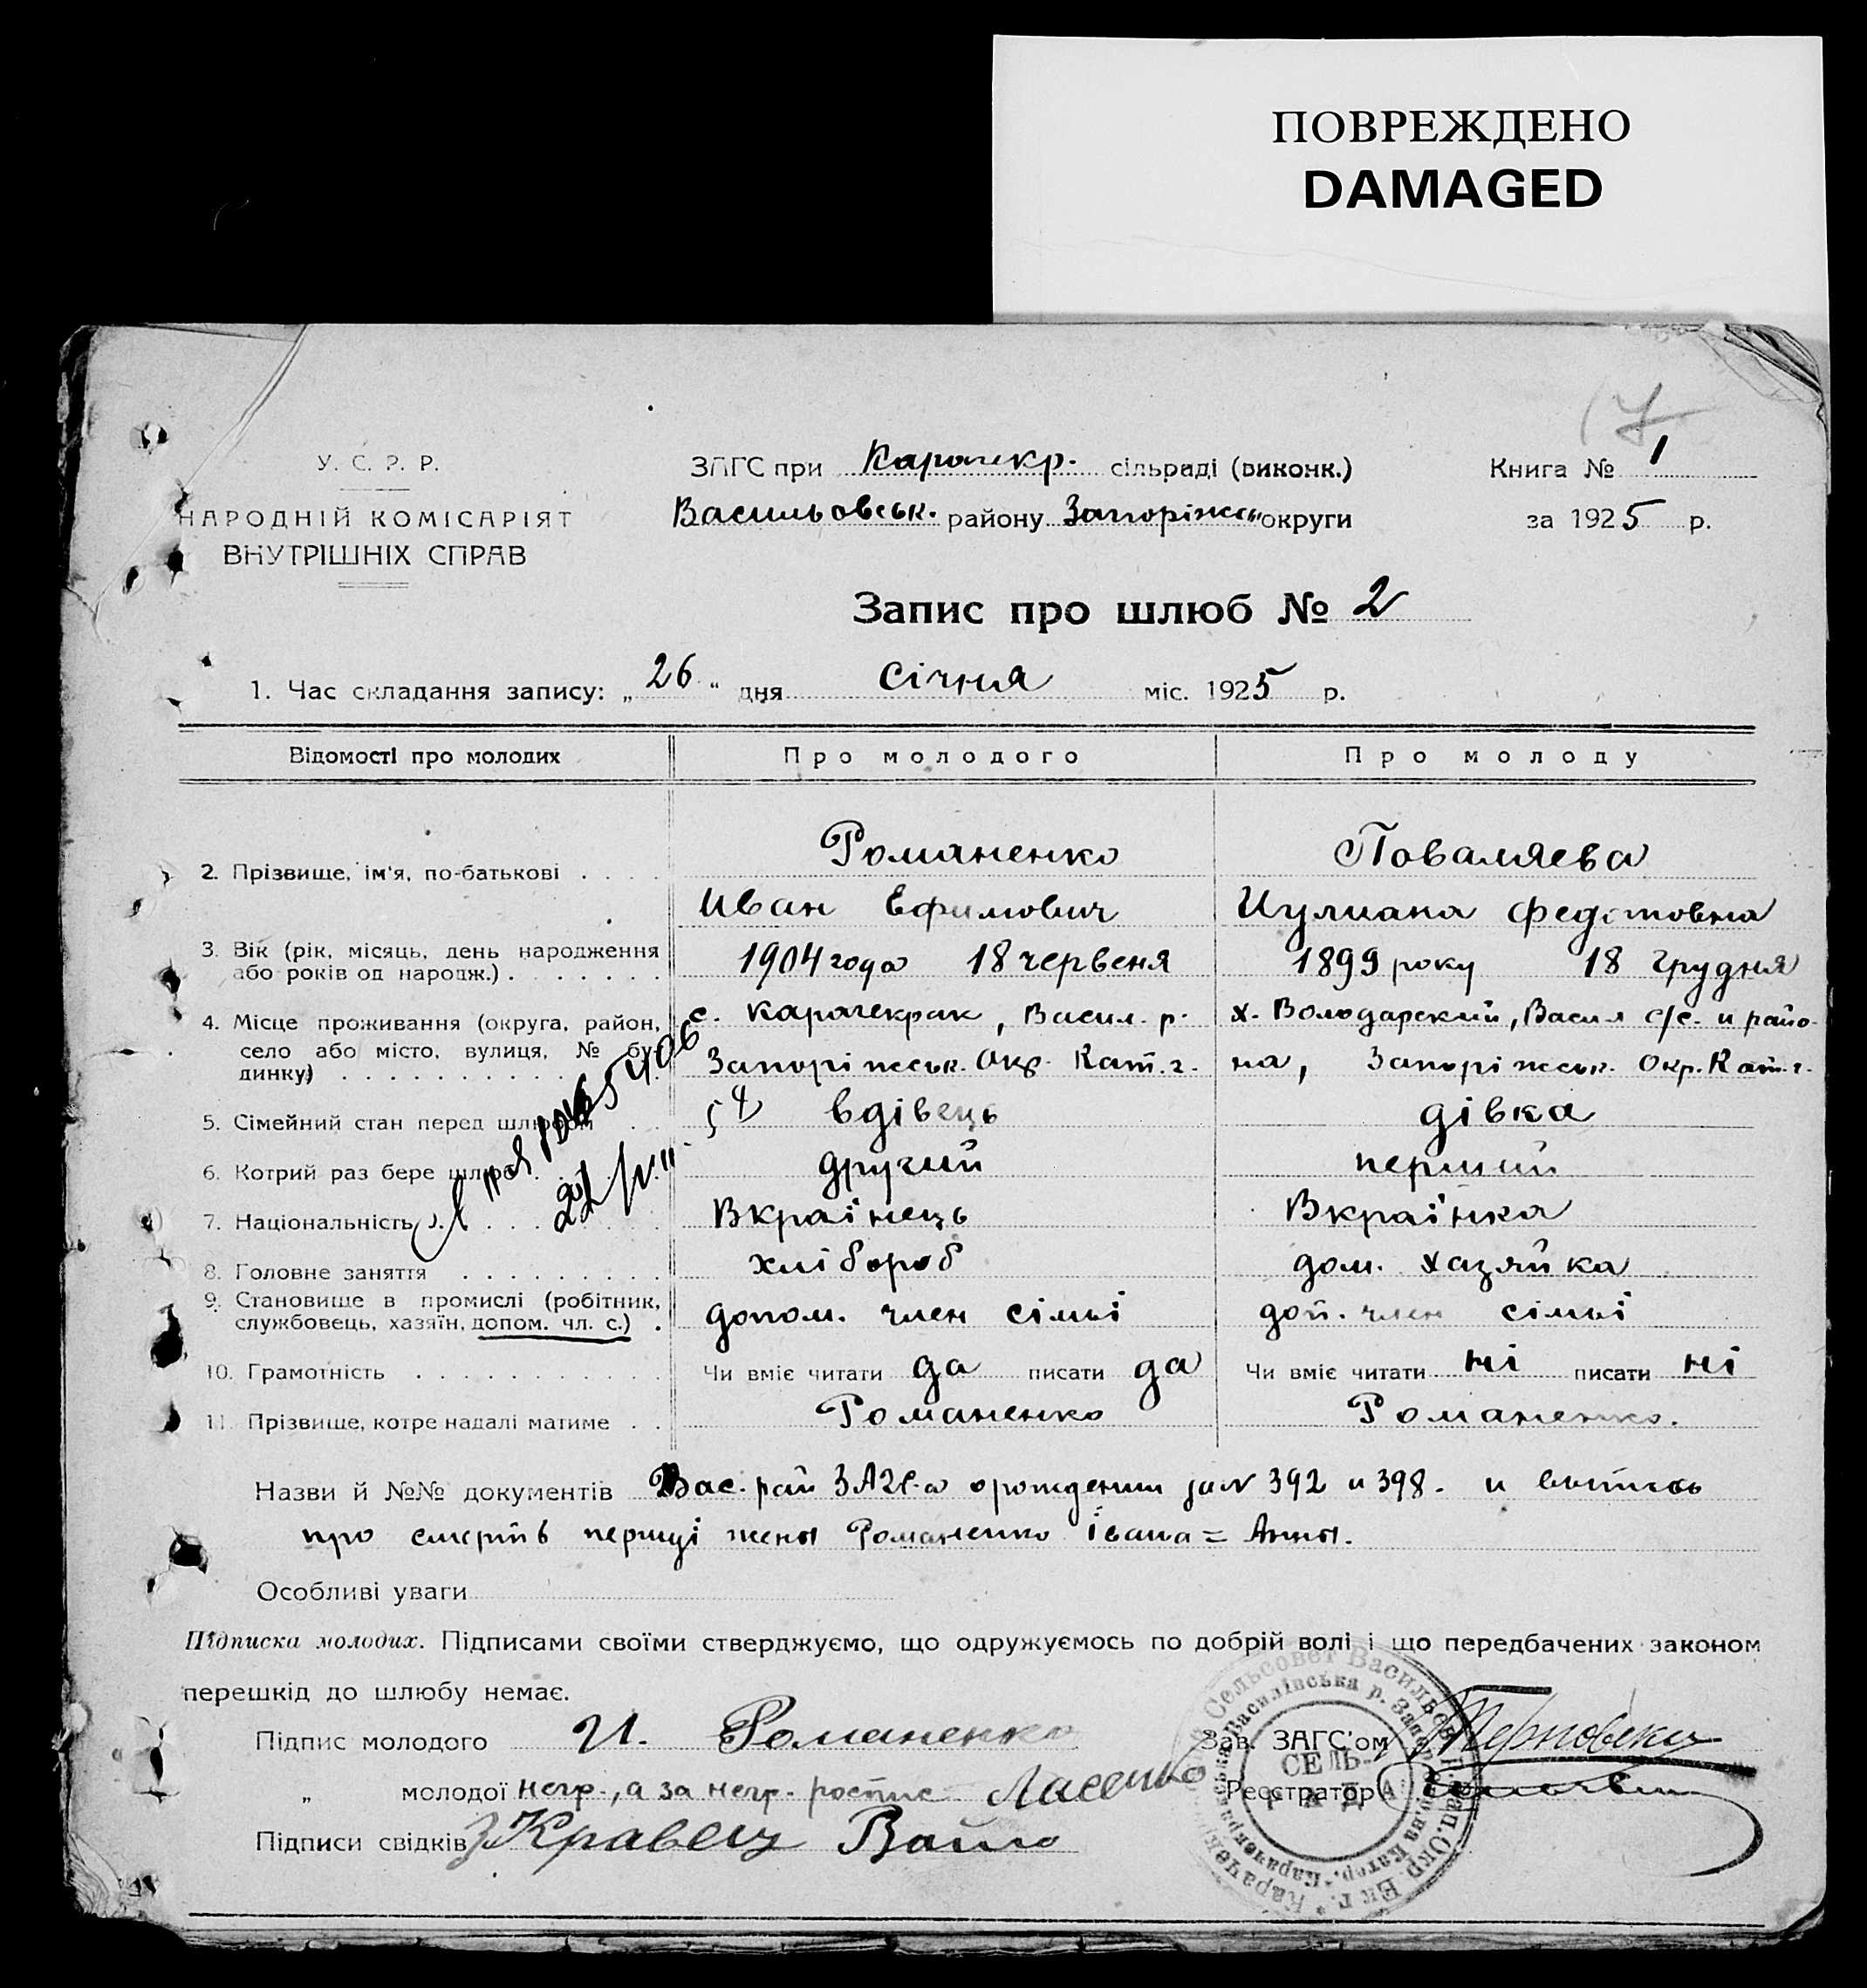 ПОВРЕЖДЕНО
DAMAGED
17
У. С. Р. Р.
НАРОДНІЙ КОМІСАРІЯТ
ВНУТРІШНІХ СПРАВ
ЗАГС при Карачекр. сільраді (виконк.)
Васильовськ. району Запоріжськ округи
Книга № 1
за 1925 р.
Запис про шлюб № 2
1. Час складання запису: „26" дня січня міс. 1925 р.
Відомості про молодих Про молодого Про молоду
2. Прізвище, ім'я, по-батькові . . . . Романенко Поваляева
Иван Ефимович Иулиана Федотовна
3. Вік (рік, місяць, день народження або років од народж.) . . . . . . . 1904 года 18 червеня 1899 року 18 Грудня
4. Місце проживання (округа, район, село або місто, вулиця, № будинку) . . . . . . . . . с. Карачекрак, Васил. р. х. Володарский, Васил с/с. и райо-
Запоріжськ. Окр. Кат. г. на, Запоріжськ. Окр. Кат. г.
5. Сімейний стан перед шлюбом . . вдівець дівка
6. Котрий раз бере шлюб . . . другий перший
7. Національність . . . . . Вкраінець Вкраінка
8. Головне заняття . . . . . . . . . хлібороб дом. хазяйка
9. Становище в промислі (робітник, службовець, хазяїн, допом. чл. с.) . допом. член сімьі доп. член сімьі
10. Грамотність . . . . . . . . . . . Чи вміє читати да писати да Чи вміє читати ні писати ні
11. Прізвище, котре надалі матиме . . Романенко Романенко.
Назви й №№ документів Вас. рай ЗАГС-а о рождении за N 392 и 398. и витись
про смерть першоі жены Романенко Івана = Анны.
Особливі уваги
Підписка молодих. Підписами своїми стверджуємо, що одружуємось по добрій волі і що передбачених законом
перешкід до шлюбу немає.
Підпис молодого И. Романенко Зав. ЗАГС'ом
„ молодої негр., а за негр. роспис Реєстратор
Підписи свідків Кравец
СЕЛЬ-
РАДА